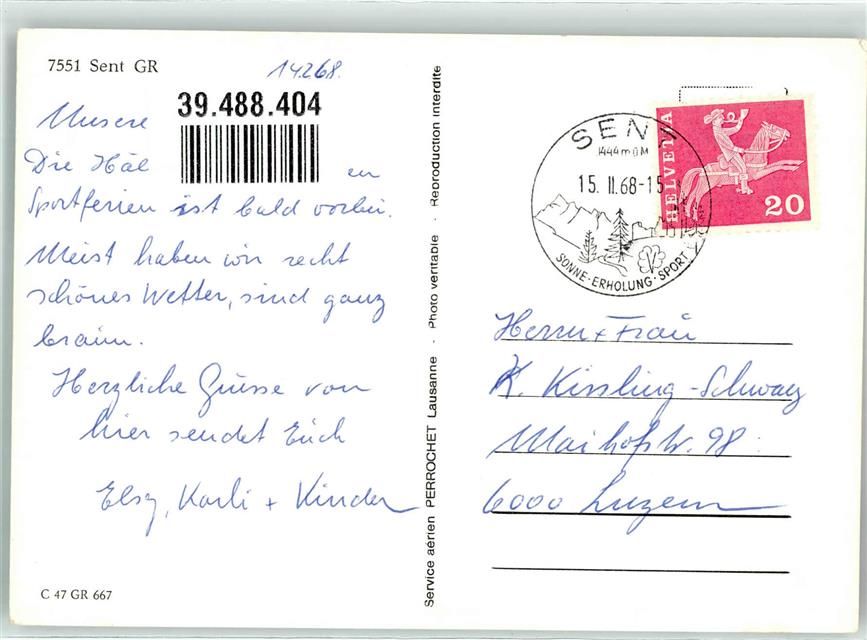 7551 Sent GR
14.2.68.
39.488.404
Unsere
Die Häl en
Sportferien ist bald vorbei.
Meist haben wir recht
schönes Wetter, sind ganz
braun.
Herzliche Grüsse von
hier sendet Euch
Elsy, Karli + Kinder
C 47 GR 667
Service aérien PERROCHET Lausanne - Photo véritable - Reproduction interdite
SENT
1444 m ü M
15. II. 68-15
SONNE · ERHOLUNG · SPORT
HELVETIA
20
Herrn + Frau
K. Kissling-Schwarz
Maihofstr. 98
6000 Luzern